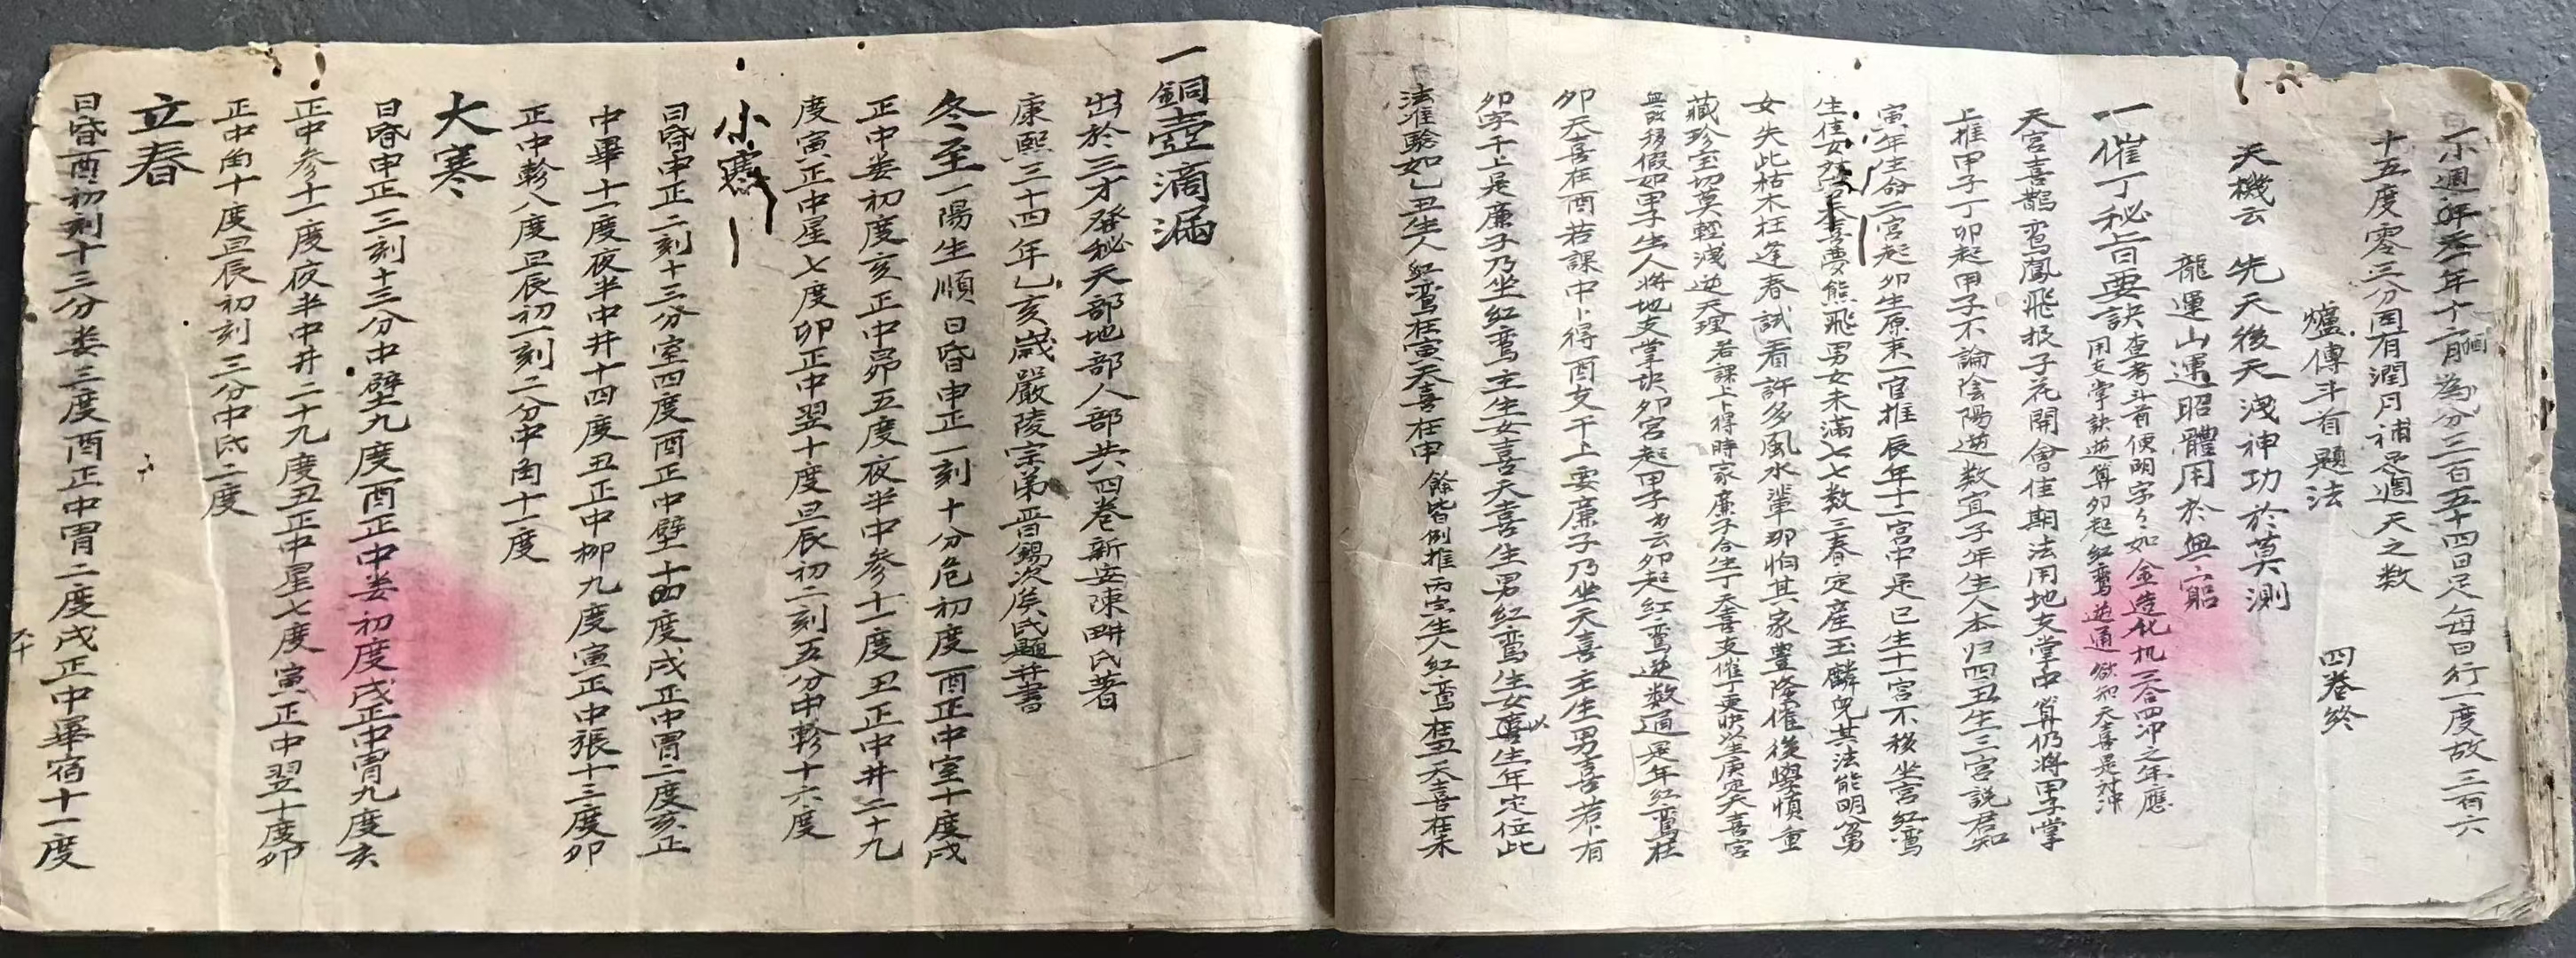 一小週年季一年十二個月為分三百五十四日足每日行一度故三百六
十五度零三分因有潤月補足週天之數
爐傳斗首題法 四卷終
天機云 先天後天洩神功於莫測
龍運山運昭體用於無窮
一催丁秘旨要訣
查考斗首便明字々如金造化机三合四冲之年應
用支掌訣逆算卯起紅鸞逆通欲知天喜是对冲
天宮喜鵲鸾鳳飛报子花開會佳期法用地支掌中算仍將甲子掌
上推甲子丁卯起甲子不論陰陽逆数宜子年生人本归四丑生三宮説君知
寅年生命二宮起卯生原来一官推辰年十二宮中是巳生十一宮不移坐宮紅鸞
生佳女对宮天喜夢熊飛男女未滿七七数三春定産玉麟兒其法能明篤
女失此枯木枉逢春試看許多風水輩那怕其家豊隆催後學慎重
藏珍宝切莫輕洩逆天理若課上卜得時家廉子合生丁天喜支催丁更快以生庚定天喜宮
無改移假如甲子生人將地支掌訣卯宮起甲子書云卯起紅鸞逆数過是年紅鸞在
卯天喜在酉若課中卜得酉支干上要廉子乃坐天喜主生男喜若有
卯字干上是廉子乃坐紅鸞主生女喜天喜生男紅鸞生女喜以生年定位此
法准驗如乙丑生人紅鸞在寅天喜在申餘皆例推丙寅生人紅鸞在丑天喜在未
一銅壺滴漏
出於三才發秘天部地部人部共四卷新安陳畊氏著
康熙三十四年乙亥歲嚴陵宗弟晋錫次侯氏題并書
冬至一陽生順日昏申正一刻十分危初度酉正中室十度戌
正中娄初度亥正中昴五度夜半中参十一度丑正中井二十九
度寅正中星七度卯正中翌十度旦辰初二刻五分中軫十六度
小寒
日昏申正二刻十三分室四度酉正中壁十四度戌正中胃二度亥正
中畢十一度夜半中井十四度丑正中柳九度寅正中張十三度卯
正中軫八度旦辰初一刻二分中角十一度
大寒
日昏申正三刻十三分中壁九度酉正中娄初度戌正中胃九度亥
正中参十一度夜半中井二十九度丑正中星七度寅正中翌十度卯
正中角十度旦辰初刻三分中氐二度
立春
日昏酉初刻十三分娄三度酉正中胃二度戌正中畢宿十一度